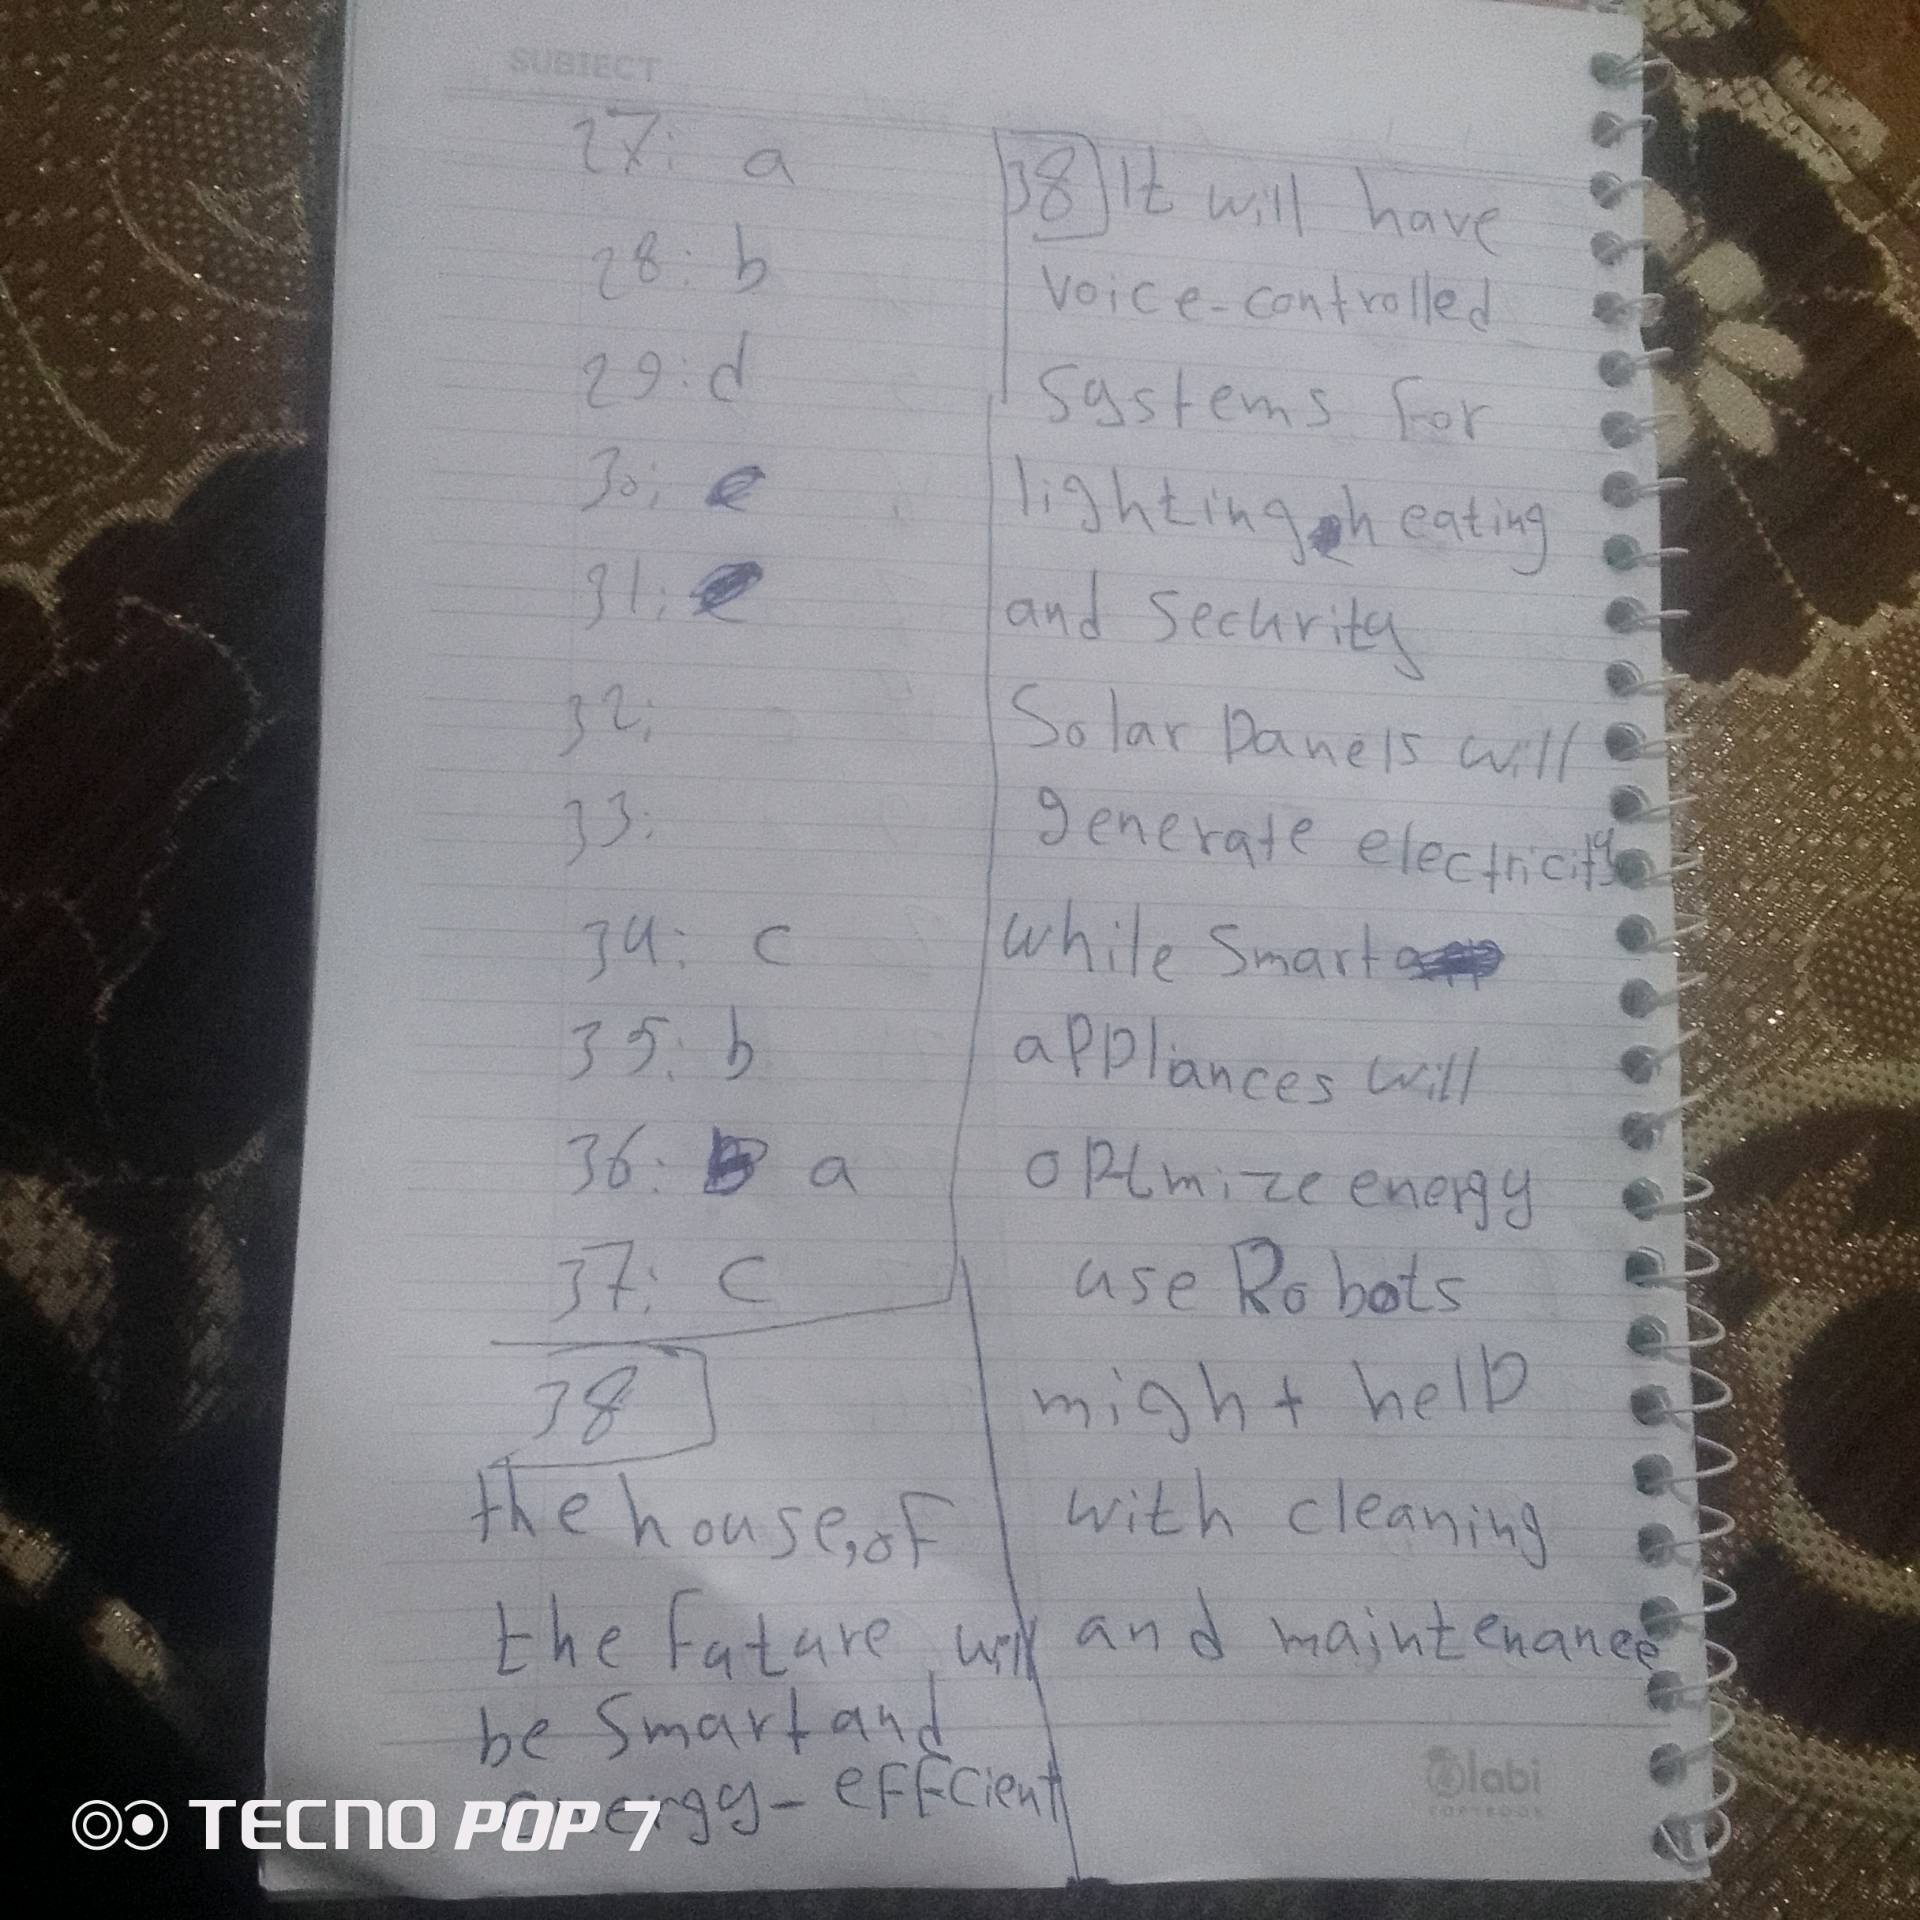 SUBJECT
27: a
28: b
29: d
30: e
31: e
32:
33:
34: c
35: b
36: b a
37: c
38
the house, of
the future will
be Smart and
energy-effcient
38 It will have
voice-controlled
Systems for
lighting, heating
and security
Solar panels will
generate electricity
while Smart
appliances will
optmize energy
use Robots
might help
with cleaning
and maintenance
labi
COPYBOOK
TECNO POP 7